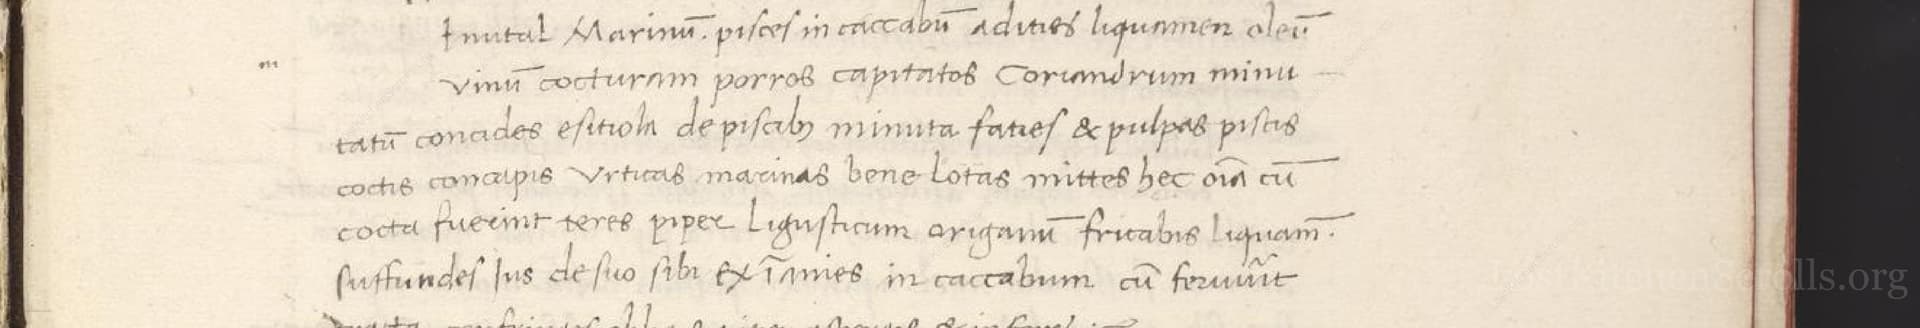 Inutal Marinū. pisces in caccabū adities liquamen oleū
m vinū cocturam porros capitatos Coriandrum minu
tatū concides esitiola de piscibꝫ minuta faties & pulpas piscis
coctis concerpis Vrticas marinas bene lotas mittes hec oīa cū
cocta fuerint teres piper Ligusticum origanū fricabis liquam̄.
suffundes Ius de suo sibi exīanies in caccabum cū